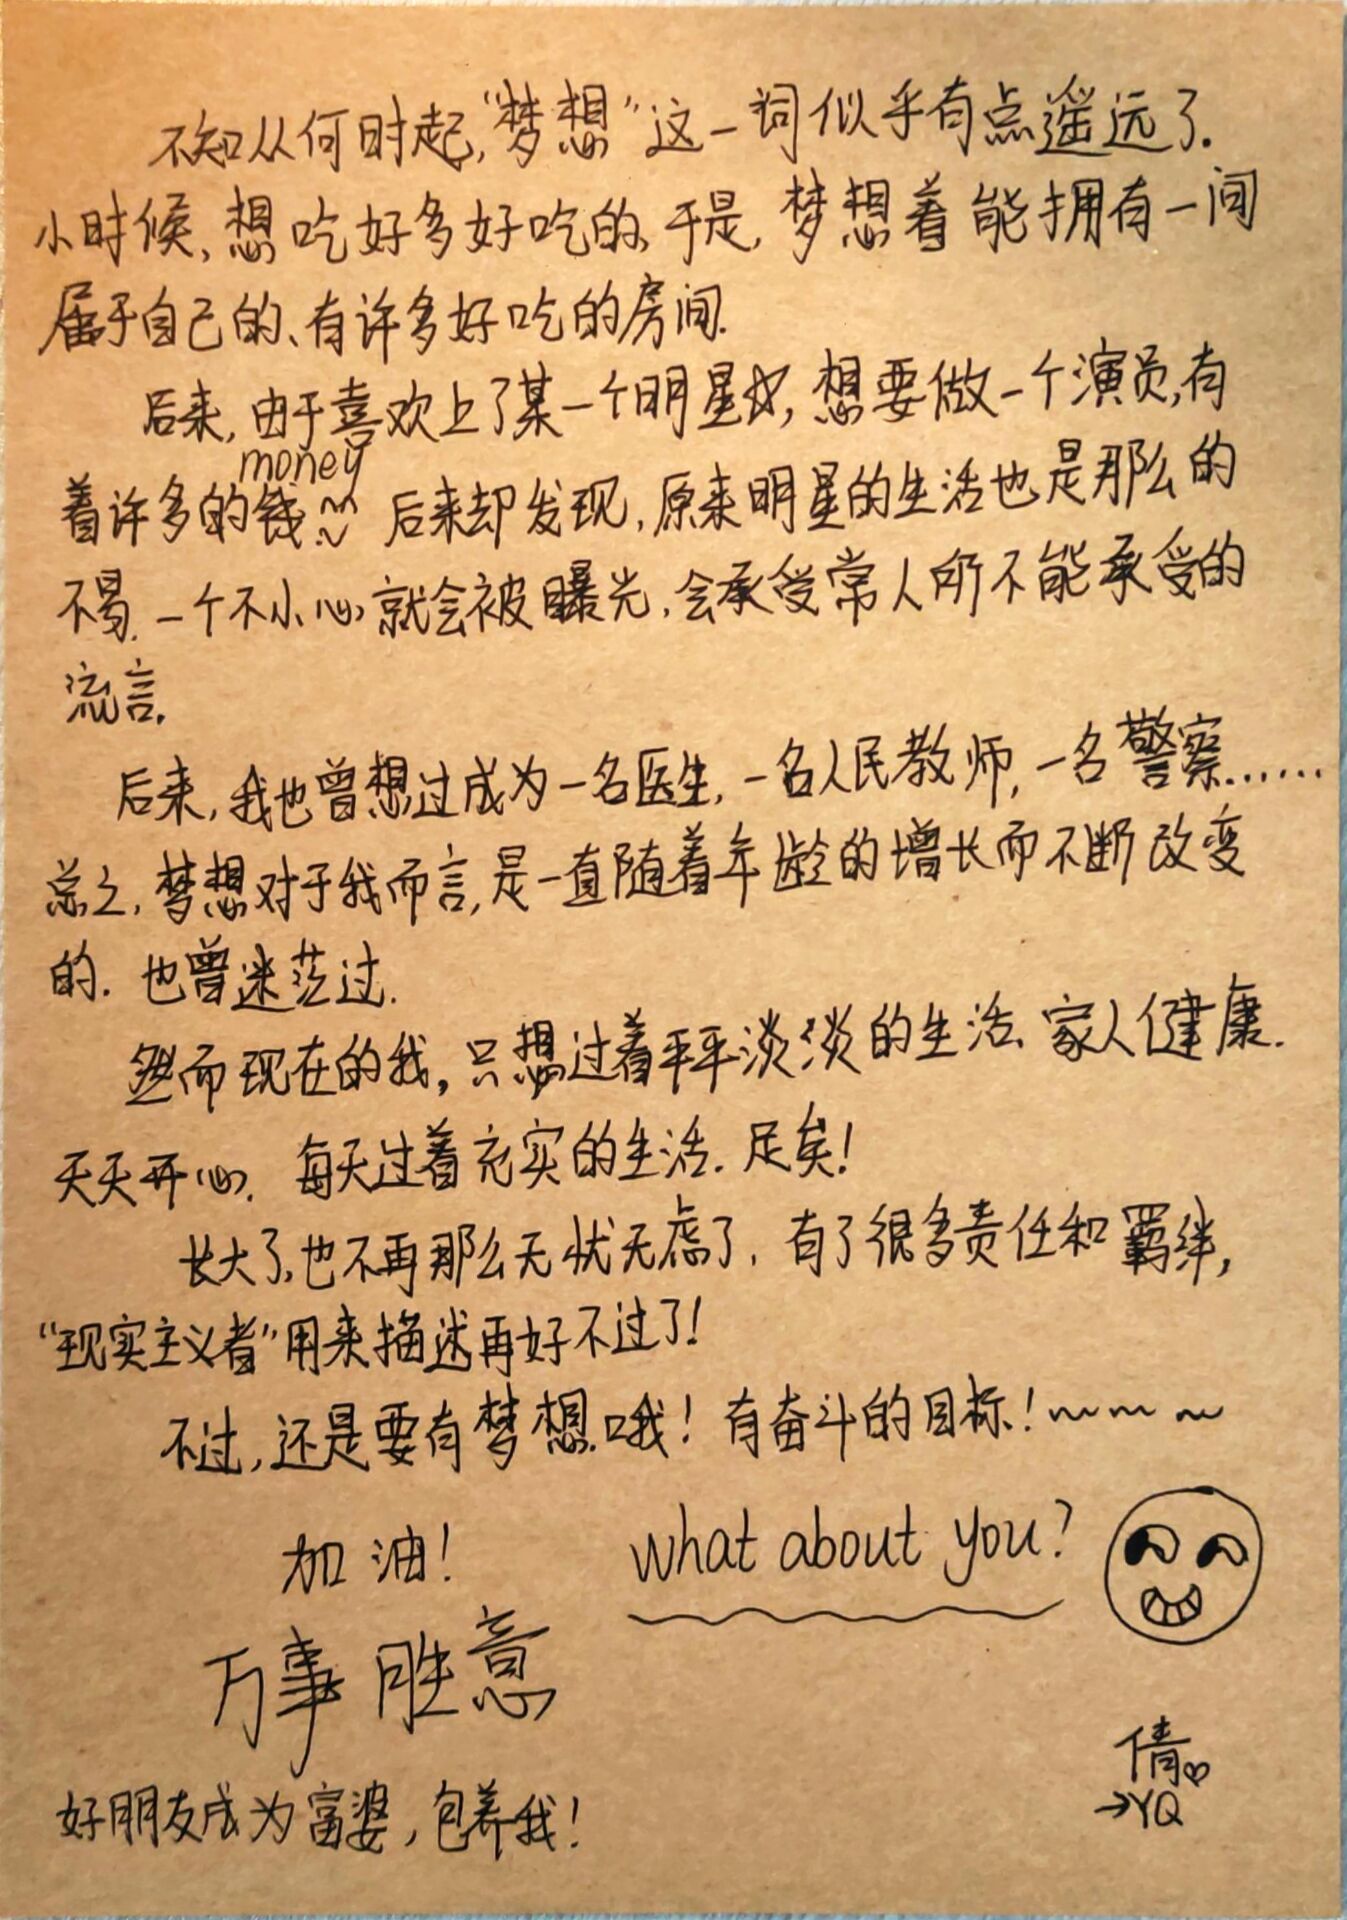 不知从何时起,“梦想”这一词似乎有点遥远了.
小时候,想吃好多好吃的、于是,梦想着能拥有一间
属于自己的、有许多好吃的房间.
后来,由于喜欢上了某一个明星☆,想要做一个演员,有
money
着许多的钱~~ 后来却发现,原来明星的生活也是那么的
不易.一个不小心就会被曝光,会承受常人所不能承受的
流言.
后来,我也曾想过成为一名医生,一名人民教师,一名警察......
总之,梦想对于我而言,是一直随着年龄的增长而不断改变
的.也曾迷茫过.
然而现在的我,只想过着平平淡淡的生活、家人健康.
天天开心.每天过着充实的生活.足矣!
长大了,也不再那么无忧无虑了,有了很多责任和羁绊,
“现实主义者”用来描述再好不过了!
不过,还是要有梦想哦!有奋斗的目标!~~~
加油!
what about you?
万事胜意
倩♡
→YQ
好朋友成为富婆,包养我!